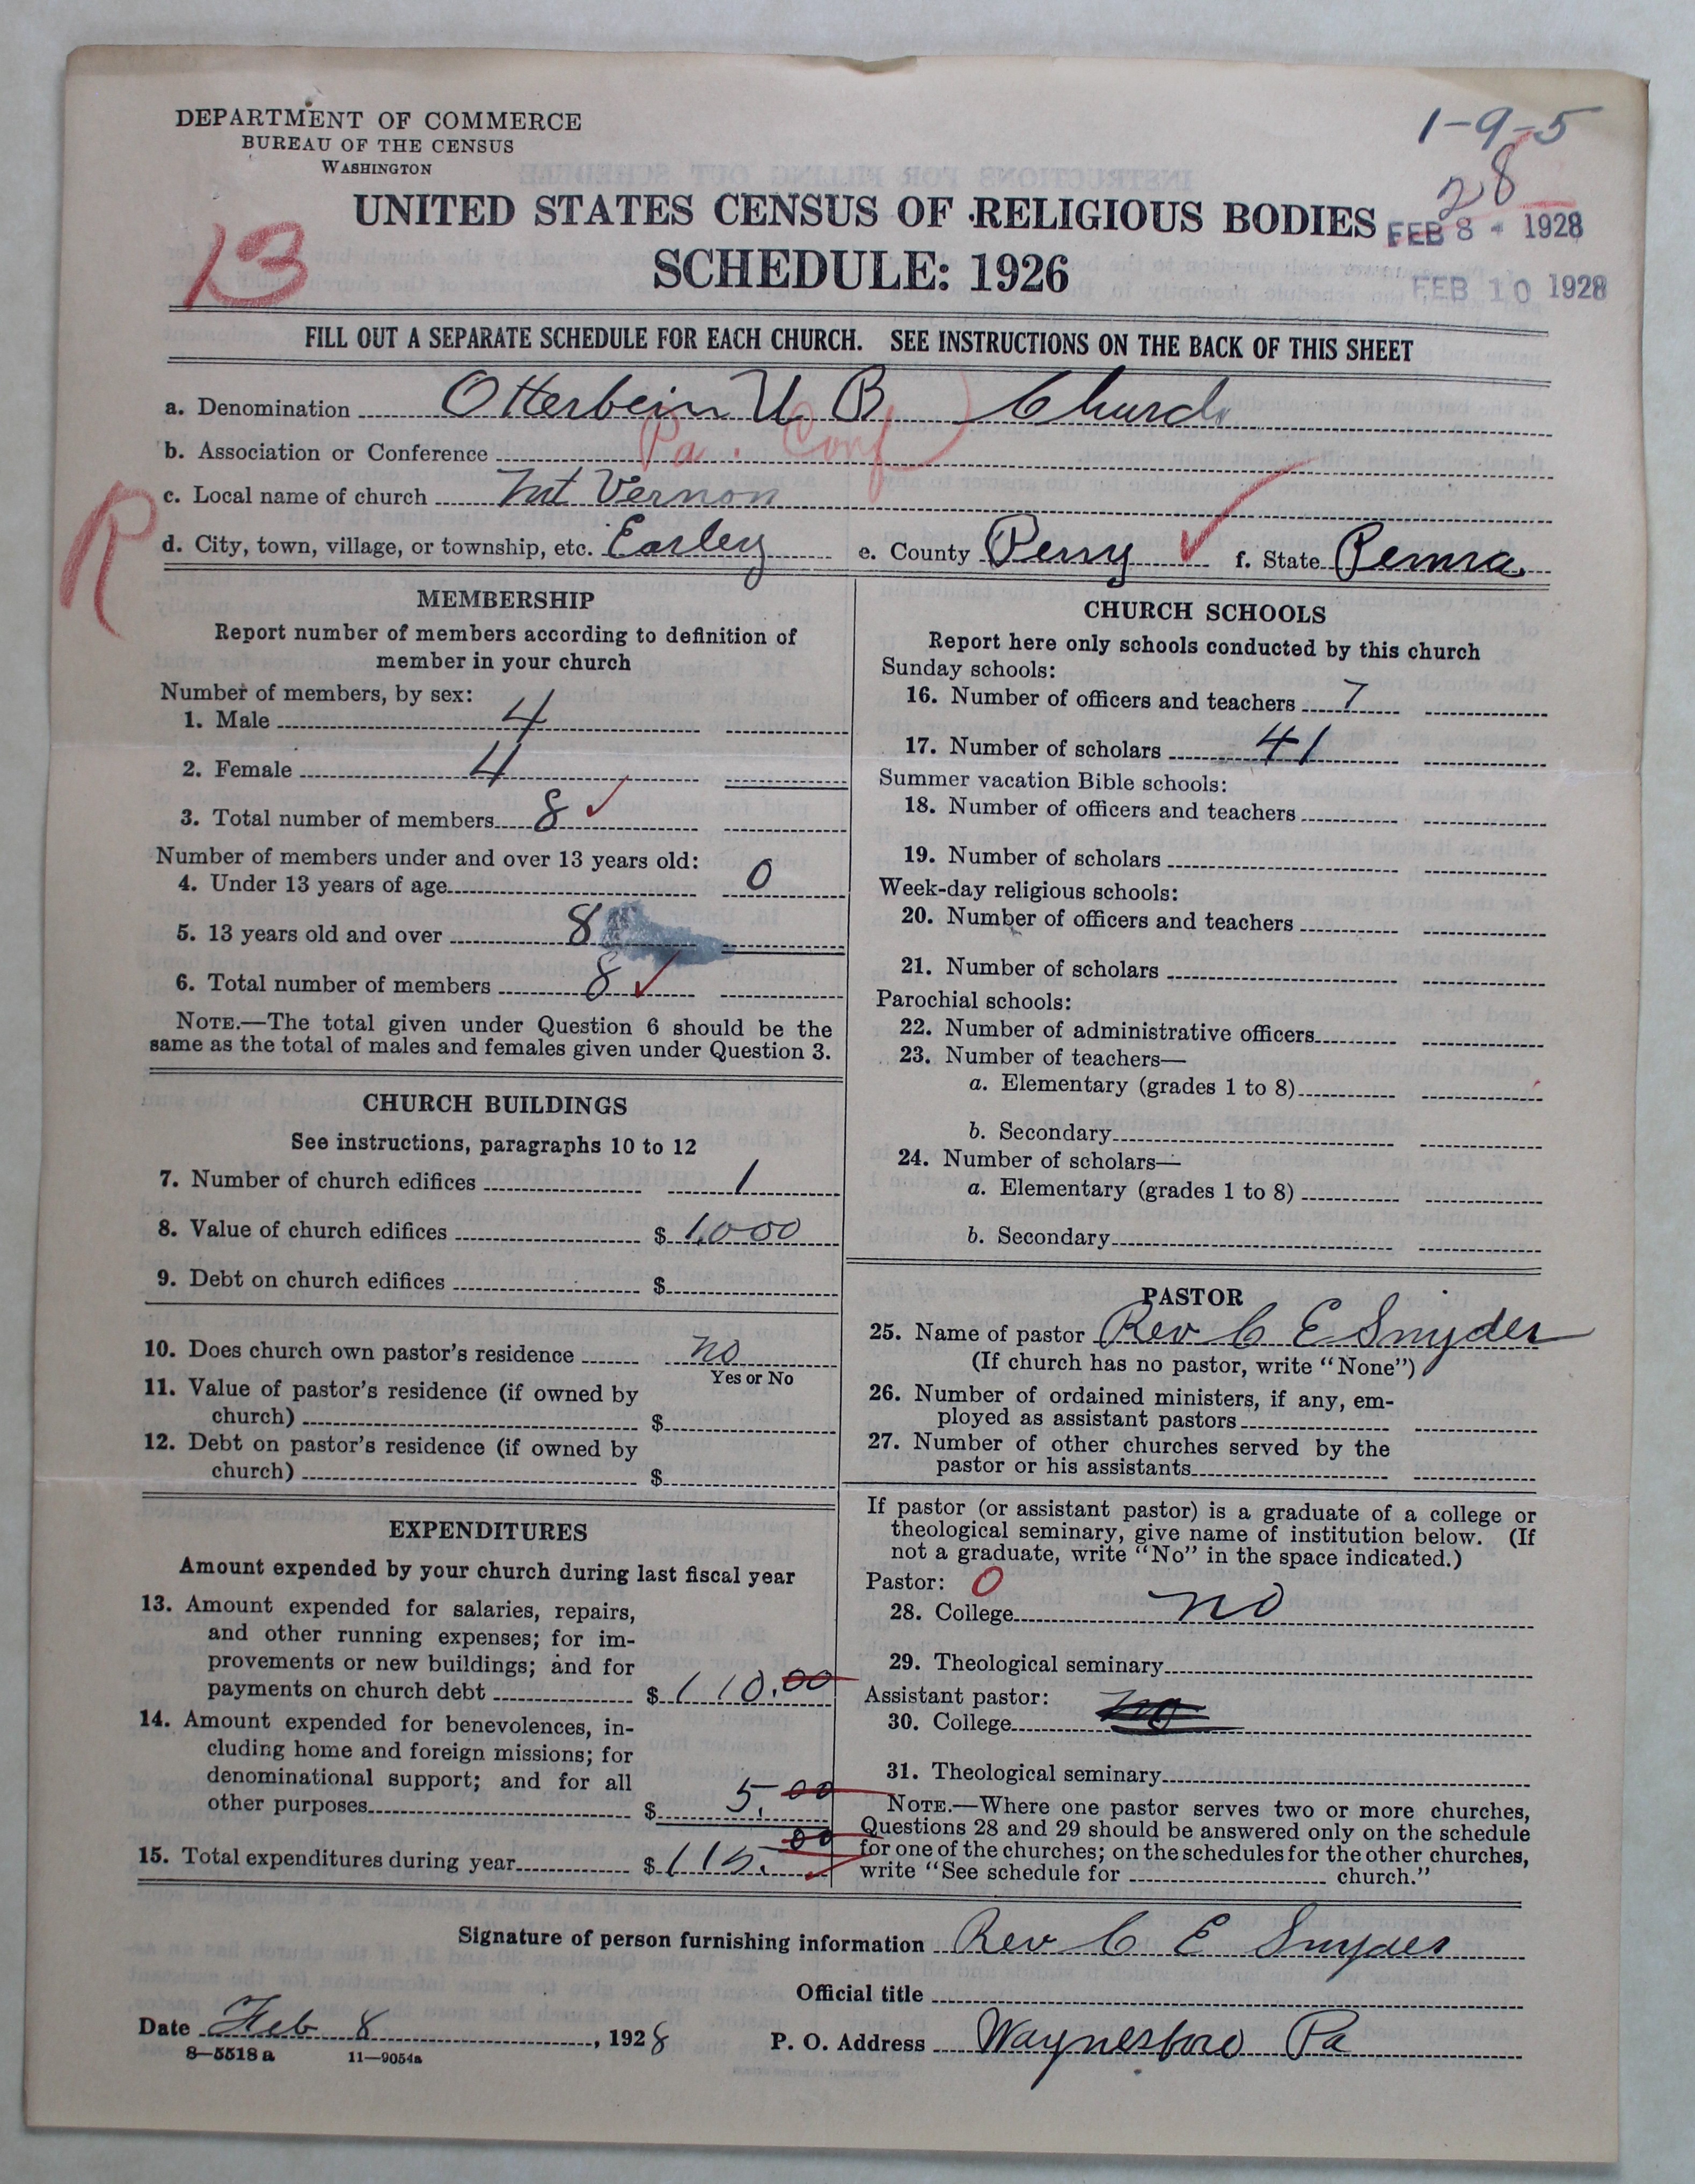 DEPARTMENT OF COMMERCE
BUREAU OF THE CENSUS
WASHINGTON
1-9-5
28
UNITED STATES CENSUS OF RELIGIOUS BODIES
FEB 8 - 1928
13
SCHEDULE: 1926
FEB 10 1928
FILL OUT A SEPARATE SCHEDULE FOR EACH CHURCH. SEE INSTRUCTIONS ON THE BACK OF THIS SHEET
a. Denomination Otterbein U B Church
b. Association or Conference Pa. Conf
c. Local name of church Mt Vernon
R
d. City, town, village, or township, etc. Earley e. County Perry ✓ f. State Penna
MEMBERSHIP
Report number of members according to definition of
member in your church
Number of members, by sex:
1. Male 4
2. Female 4
3. Total number of members 8 ✓
Number of members under and over 13 years old:
4. Under 13 years of age 0
5. 13 years old and over 8
6. Total number of members 8 ✓
NOTE.—The total given under Question 6 should be the
same as the total of males and females given under Question 3.
CHURCH BUILDINGS
See instructions, paragraphs 10 to 12
7. Number of church edifices 1
8. Value of church edifices $ 1,000
9. Debt on church edifices $
10. Does church own pastor's residence no
Yes or No
11. Value of pastor's residence (if owned by
church) $
12. Debt on pastor's residence (if owned by
church) $
EXPENDITURES
Amount expended by your church during last fiscal year
13. Amount expended for salaries, repairs,
and other running expenses; for im-
provements or new buildings; and for
payments on church debt $ 110.00
14. Amount expended for benevolences, in-
cluding home and foreign missions; for
denominational support; and for all
other purposes $ 5.00
15. Total expenditures during year $ 115.00 ✓
CHURCH SCHOOLS
Report here only schools conducted by this church
Sunday schools:
16. Number of officers and teachers 7
17. Number of scholars 41
Summer vacation Bible schools:
18. Number of officers and teachers
19. Number of scholars
Week-day religious schools:
20. Number of officers and teachers
21. Number of scholars
Parochial schools:
22. Number of administrative officers
23. Number of teachers—
a. Elementary (grades 1 to 8)
b. Secondary
24. Number of scholars—
a. Elementary (grades 1 to 8)
b. Secondary
PASTOR
25. Name of pastor Rev C E Snyder
(If church has no pastor, write "None")
26. Number of ordained ministers, if any, em-
ployed as assistant pastors
27. Number of other churches served by the
pastor or his assistants
If pastor (or assistant pastor) is a graduate of a college or
theological seminary, give name of institution below. (If
not a graduate, write "No" in the space indicated.)
Pastor: 0
28. College no
29. Theological seminary
Assistant pastor:
30. College no
31. Theological seminary
NOTE.—Where one pastor serves two or more churches,
Questions 28 and 29 should be answered only on the schedule
for one of the churches; on the schedules for the other churches,
write "See schedule for church."
Signature of person furnishing information Rev C E Snyder
Official title
Date Feb 8, 1928 P. O. Address Waynesboro Pa
8—5518a 11—9054a